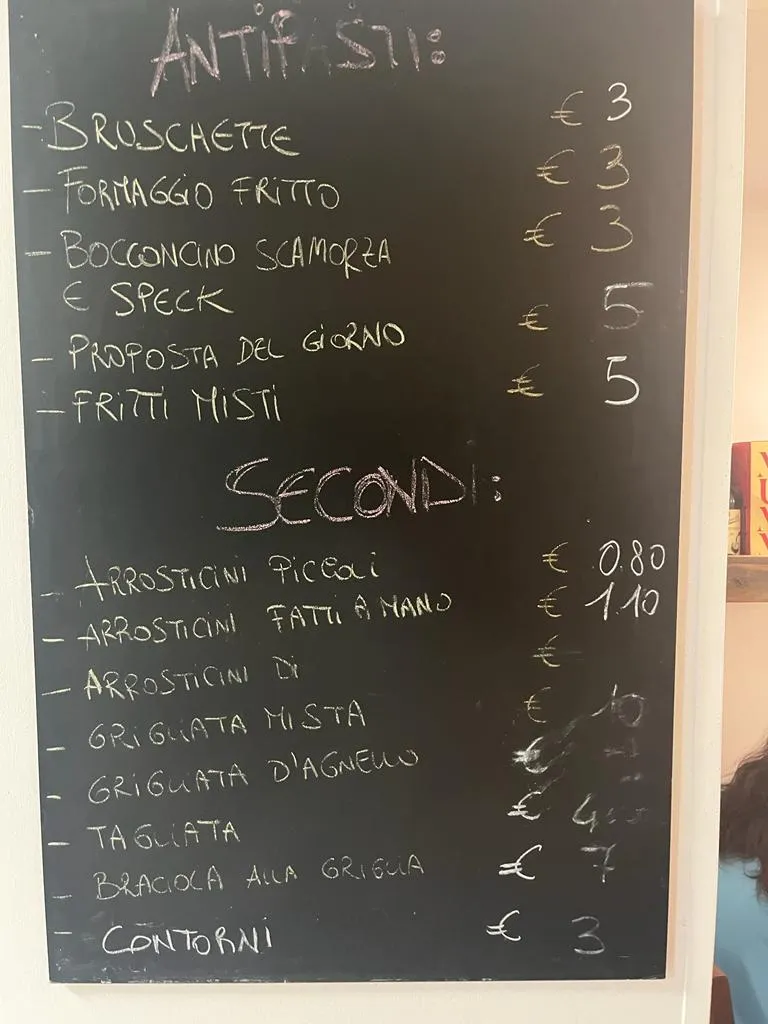 ANTIPASTI:
- BRUSCHETTE € 3
- FORMAGGIO FRITTO € 3
- BOCCONCINO SCAMORZA € 3
E SPECK
- PROPOSTA DEL GIORNO € 5
- FRITTI MISTI € 5
SECONDI:
- ARROSTICINI PICCOLI € 0.80
- ARROSTICINI FATTI A MANO € 1.10
- ARROSTICINI DI €
- GRIGLIATA MISTA € 10
- GRIGLIATA D'AGNELLO €
- TAGLIATA €
- BRACIOLA ALLA GRIGLIA € 7
- CONTORNI € 3